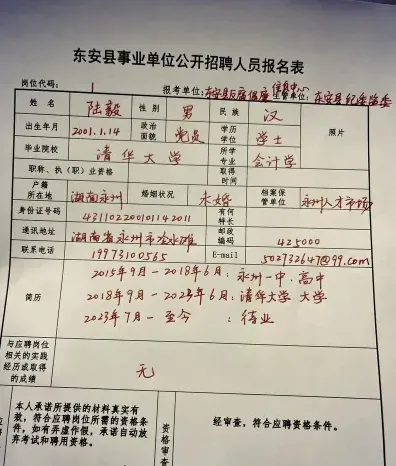 东安县事业单位公开招聘人员报名表
岗位代码： 1 报考单位：东安县反腐倡廉信息中心 主管单位：东安县纪委监委
姓名 陆毅 性别 男 民族 汉 照片
出生年月 2001.1.14 政治面貌 党员 学历学位 学士
毕业院校 清华大学 所学专业 会计学
职称、执（职）业资格 取得时间
户籍所在地 湖南永州 婚姻状况 未婚 档案保管单位 永州人才市场
身份证号码 431102200101142011 有何特长
通讯地址 湖南省永州市冷水滩 邮政编码 425000
联系电话 19973100565 E-mail 502732647@99.com
简历
2015年9月－2018年6月：永州一中．高中
2018年9月－2023年6月：清华大学 大学
2023年7月－至今：待业
与应聘岗位相关的实践经历或取得的成绩 无
本人承诺所提供的材料真实有
效，符合应聘岗位所需的资格条
件，如有弄虚作假，承诺自动放
弃考试和聘用资格。
资格审查
经审查，符合应聘资格条件。